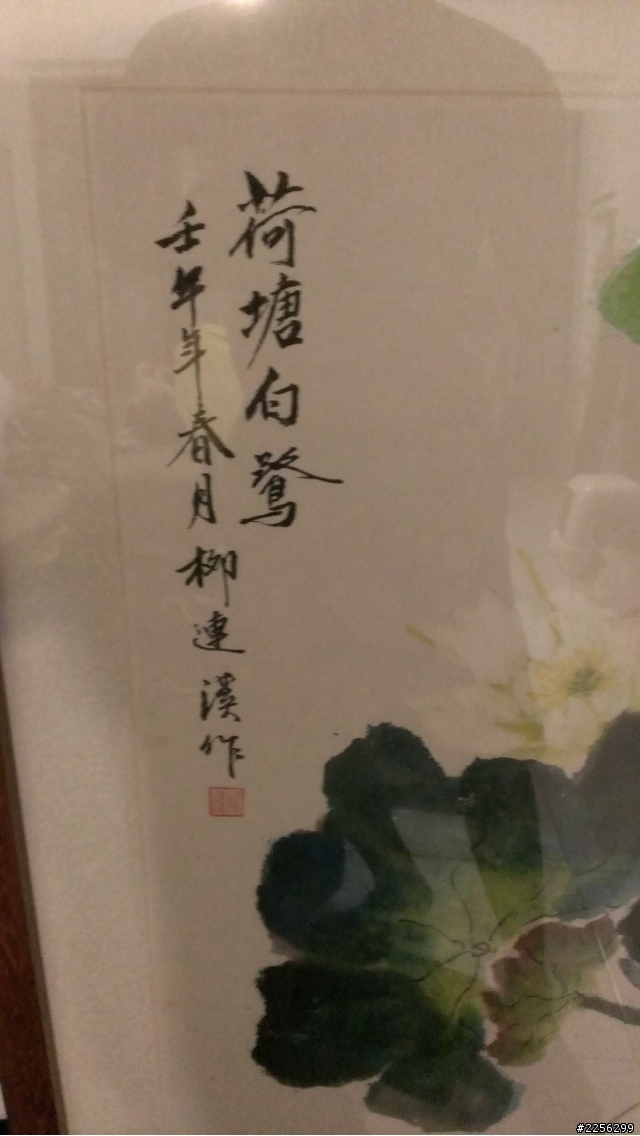 荷塘白鷺
壬年年春月柳連溪作
#2256299